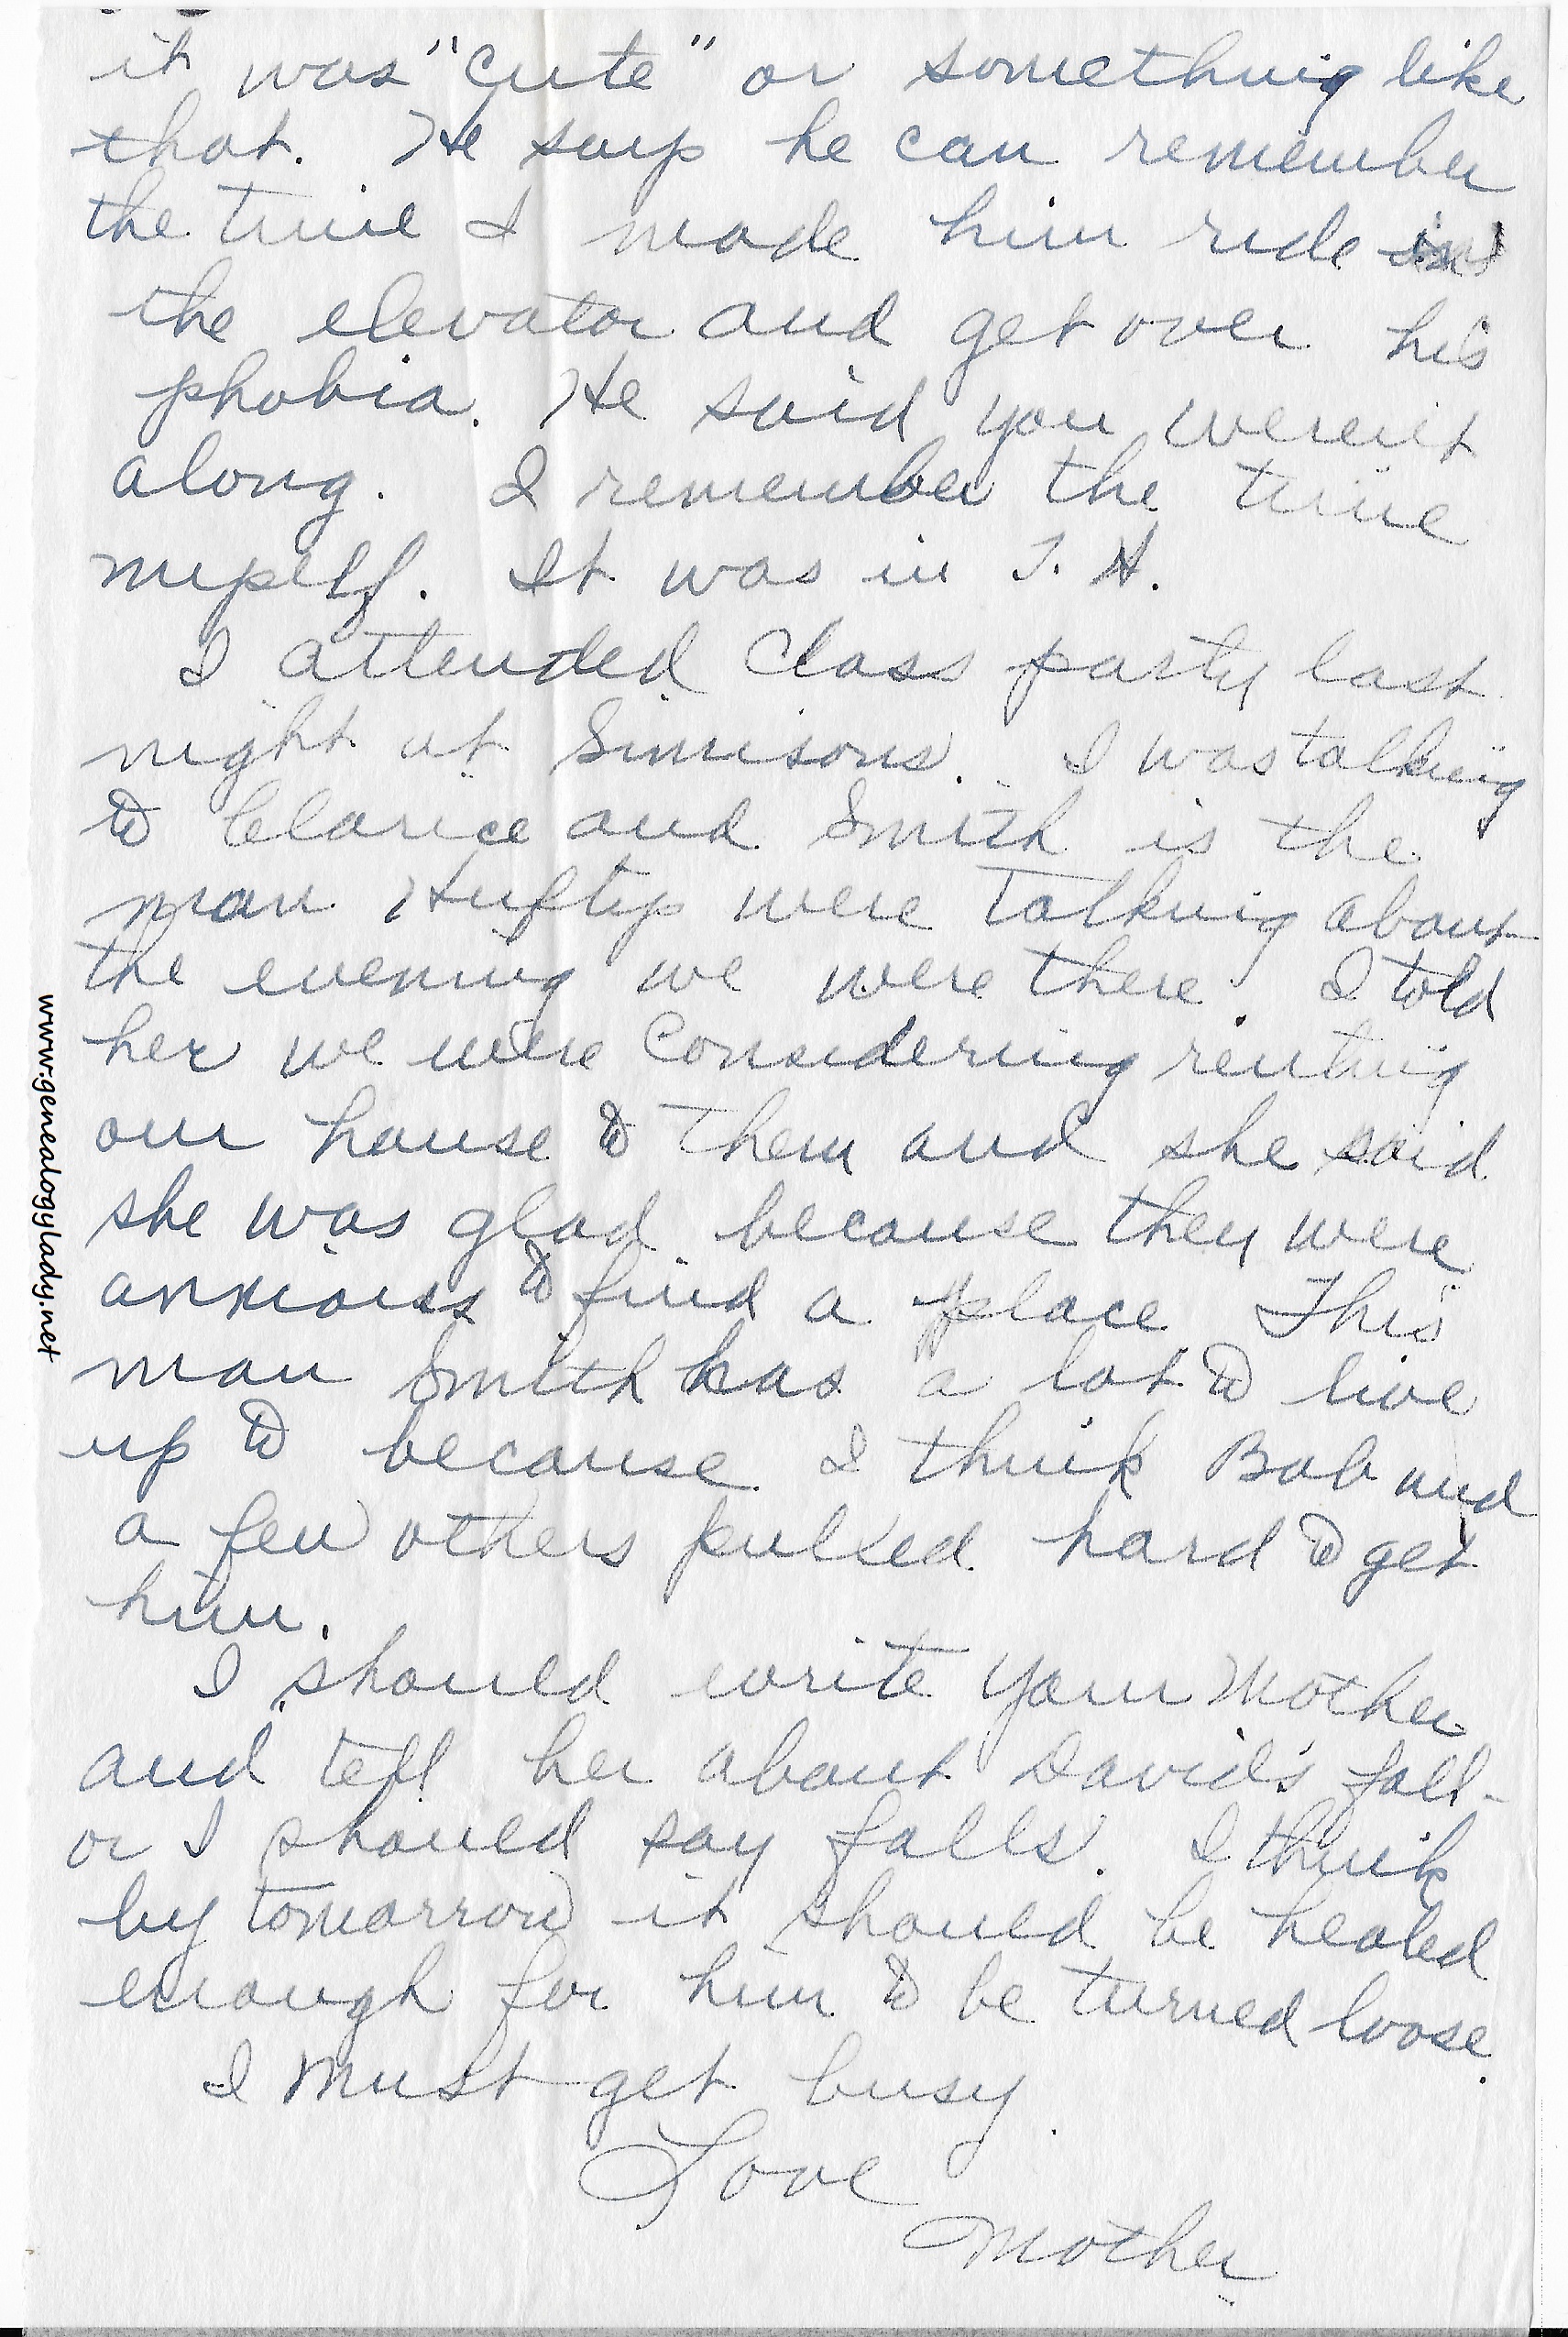 it was "cute" or something like
that. He says he can remember
the time I made him ride in
the elevator and get over his
phobia. He said you weren't
along. I remember the time
myself. It was in T. H.
I attended Class party last
night at Simisons. I was talking
to Clarice and Smith is the
man Huftys were talking about
the evening we were there. I told
her we were considering renting
our house to them and she said
she was glad because they were
anxious to find a place This
man Smith has a lot to live
up to because I think Bob and
a few others pulled hard to get
him.
I should write your Mother
and tell her about David's fall-
or I should say falls. I think
by tomorrow it should be healed
enough for him to be turned loose.
I must get busy.
Love
Mother
www.genealogylady.net